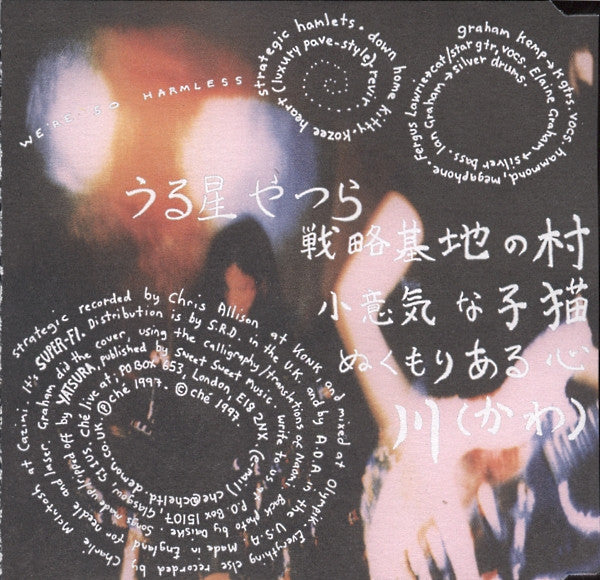 WE'RE SO HARMLESS
strategic hamlets. down home kitty. kozee heart (luxury pave-style). revir.
graham kemp→k gtrs. vocs. hammond, megaphone. Fergus Lawrie→cat/star gtr, vocs. Elaine Graham→silver bass. Ian Graham→silver drums.
うる星やつら
戦略基地の村
小意気な子猫
ぬくもりある心
川(かわ)
strategic recorded by Chris Allison at Konk and mixed at Olympik. Everything else recorded by Charlie McIntosh at Cazimi. It's SUPER-FI. Distribution is by S.R.D. in the U.K. and by A.D.A. in the U.S.A. Made in England for needle and/or laser. Graham did the cover, using the calligraphy/translations of Nami. Back photo by Daisuke. Songs made up/ripped off by YATSURA, published by Sweet Sweet Music. write to us at P.O. Box 15107, Glasgow, Ché live at: PO BOX 653, London, E18 2NX. (e.mail) che@cheltd.demon.co.uk. ℗ ché 1997. © ché 1997.